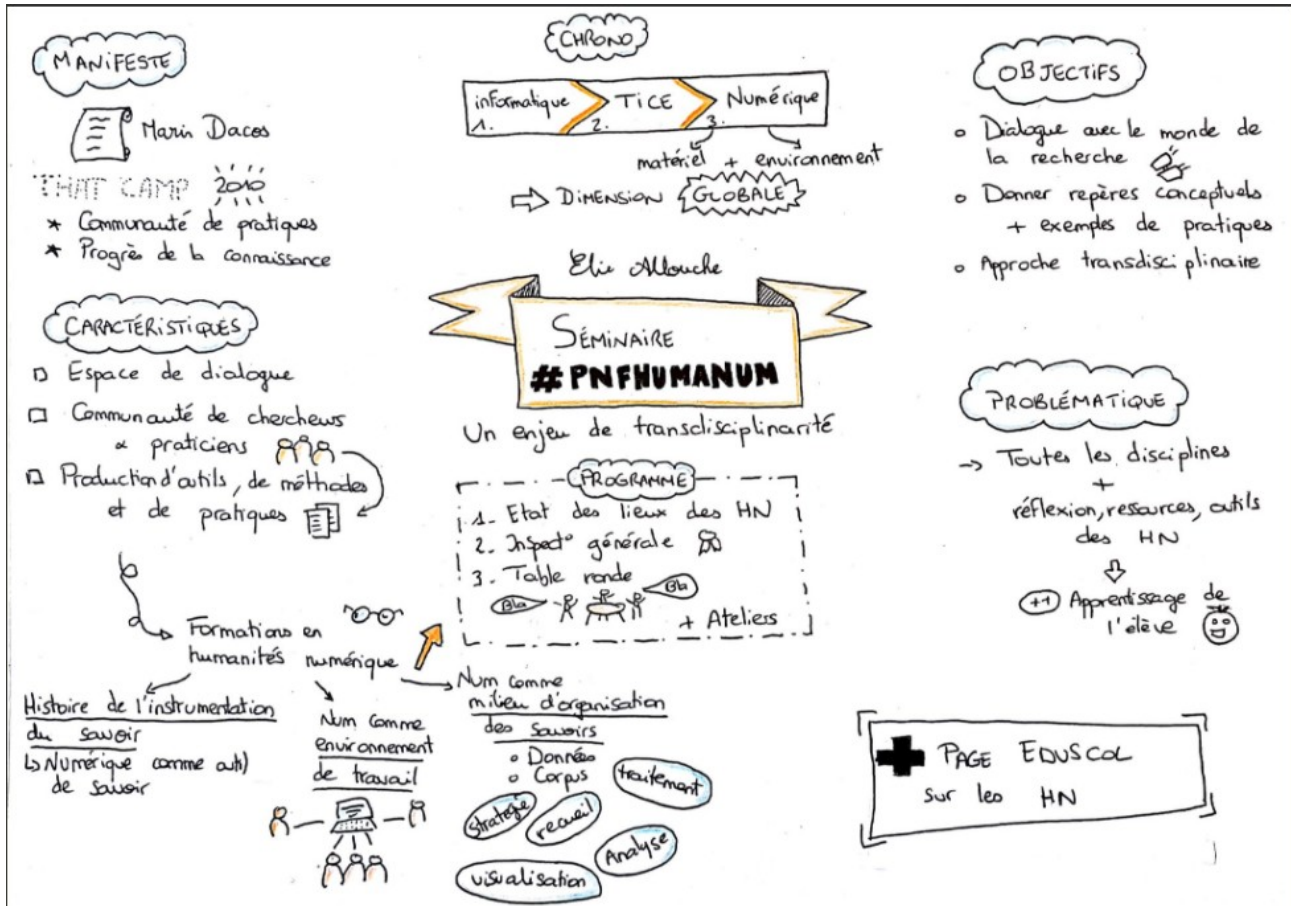 MANIFESTE
Marin Dacos
THAT CAMP 2010
* Communauté de pratiques
* Progrès de la connaissance
CARACTÉRISTIQUES
Espace de dialogue
Communauté de chercheurs
& praticiens
Production d'outils, de méthodes
et de pratiques
Formations en
humanités numérique
Histoire de l'instrumentation
du savoir
↳ Numérique comme outil
de savoir
Num comme
environnement
de travail
Num comme
milieu d'organisation
des savoirs
o Données
o Corpus
traitement
stratégie
recueil
Analyse
visualisation
CHRONO
informatique TICE Numérique
1. 2. 3.
matériel + environnement
⇨ DIMENSION GLOBALE
Elie Allouche
SÉMINAIRE
#PNFHUMANUM
Un enjeu de transdisciplinarité
PROGRAMME
1- Etat des lieux des HN
2. Inspect° générale
3- Table ronde
Bla Bla
+ Ateliers
OBJECTIFS
o Dialogue avec le monde de
la recherche
o Donner repères conceptuels
+ exemples de pratiques
o Approche transdisciplinaire
PROBLÉMATIQUE
→ Toutes les disciplines
+
réflexion, ressources, outils
des HN
++ Apprentissage de
l'élève
+ PAGE EDUSCOL
sur les HN